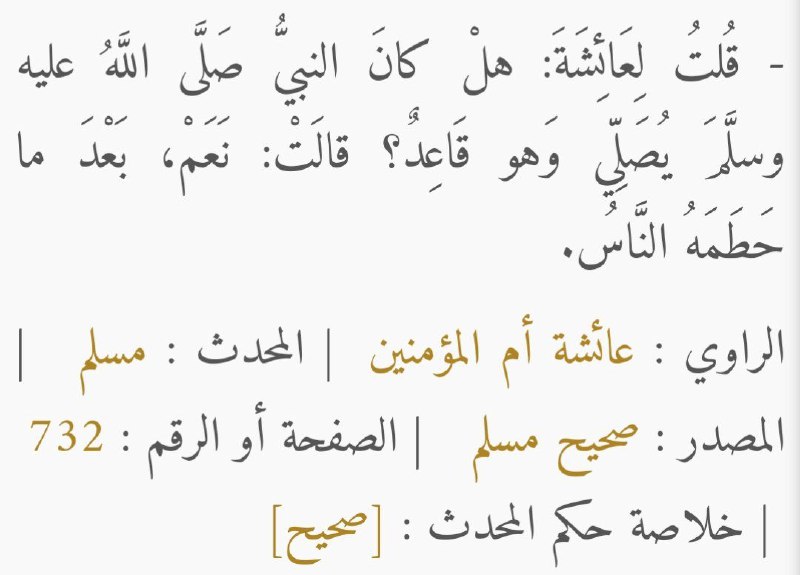 - قُلتُ لِعَائِشَةَ: هلْ كانَ النبيُّ صَلَّى اللَّهُ عليه
وسلَّمَ يُصَلِّي وَهو قَاعِدٌ؟ قالَتْ: نَعَمْ، بَعْدَ ما
حَطَمَهُ النَّاسُ.
الراوي : عائشة أم المؤمنين | المحدث : مسلم |
المصدر : صحيح مسلم | الصفحة أو الرقم : 732
| خلاصة حكم المحدث : [صحيح]